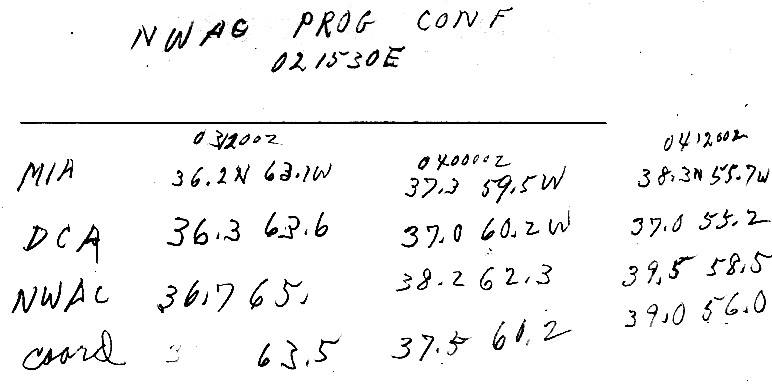 NWAC PROG CONF
021530E
031200Z 040000Z 041200Z
MIA 36.2N 63.1W 37.3 59.5W 38.3N 55.7W
DCA 36.3 63.6 37.0 60.2W 37.0 55.2
NWAC 36.7 65. 38.2 62.3 39.5 58.5
coord 3 63.5 37.5 60.2 39.0 56.0